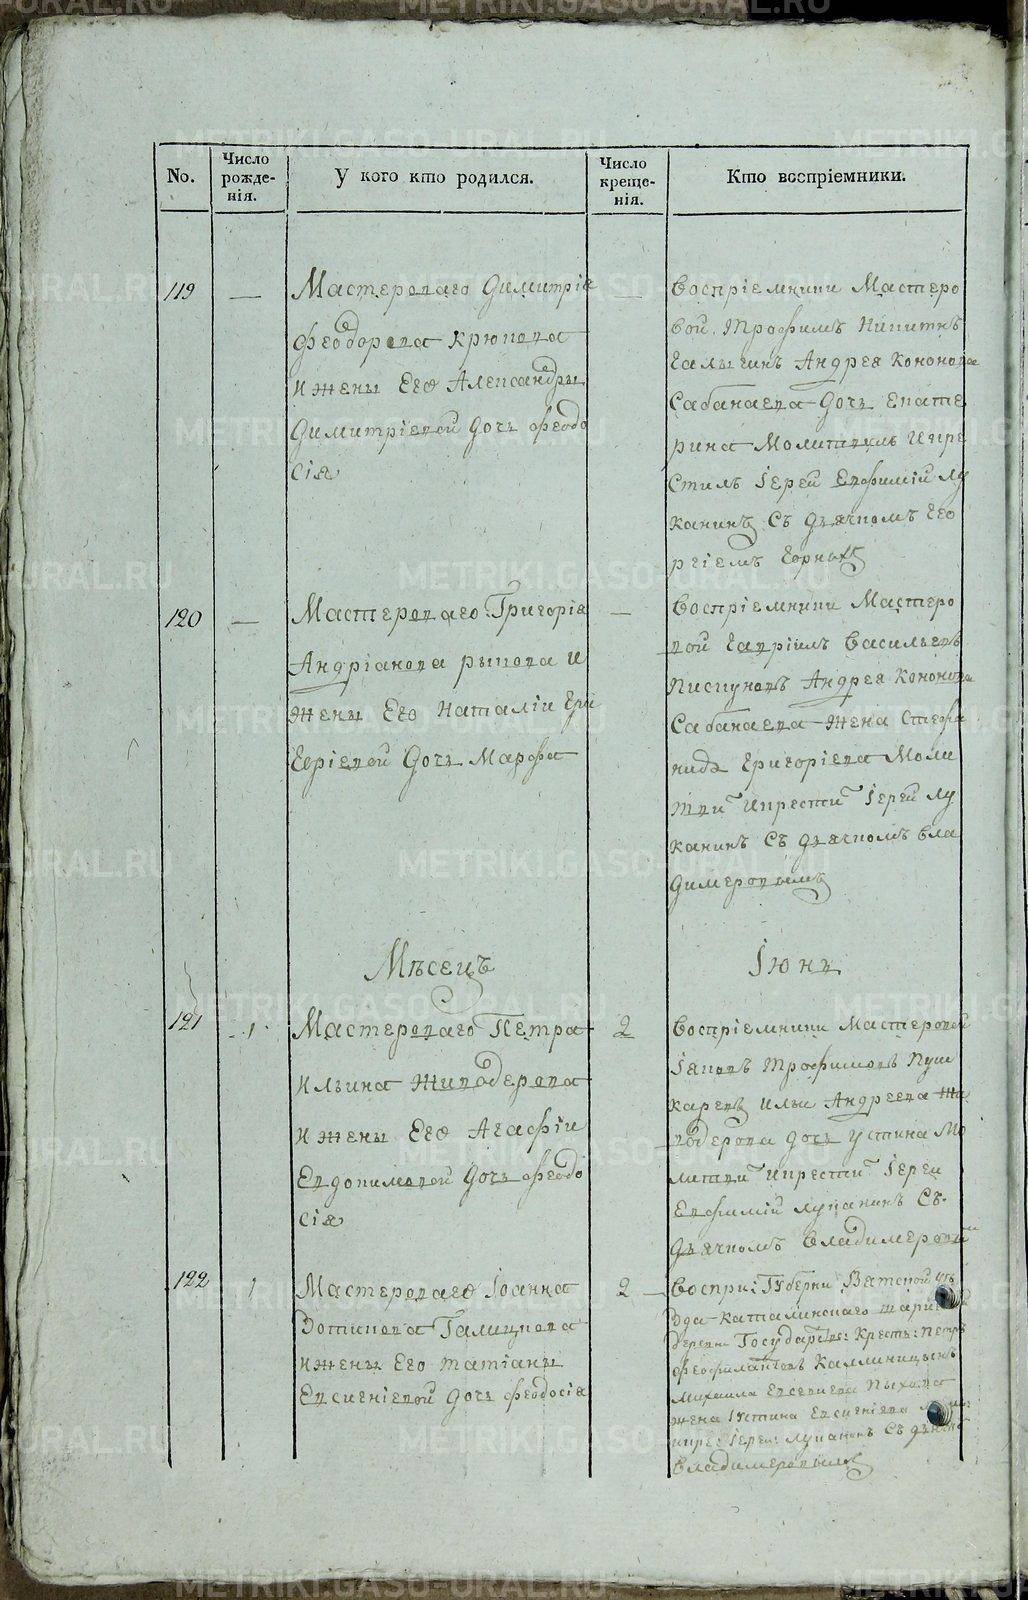 No.
Число рожде-нія.
У кого кто родился.
Число креще-нія.
Кто воспріемники.
119 —
Мастероваго Димитрія
Феодорова Крюкова
и жены Его Александры
Димитріевой дочь Феодо
сія
—
Воспріемники Мастеро
вой Трофимъ Никитнъ
Галыгинъ Андрея Кононова
Сабанаева Дочь Екате
рина Молитвилъ и кре
стилъ Іерей Евфимій Лу
канинъ Съ дьячкомъ Гео
ргіемъ
120 —
Мастероваго Григорія
Андріанова рыкова и
жены Его Наталіи Гри
горіевой Дочь Марфа
—
Воспріемники Мастеро
вой Гавріилъ Васильевъ
Пискуновъ Андрея Кононова
Сабанаева жена Стефа
нида Григоріева Моли
тви и крести Іерей Лу
канинъ Съ дьячкомъ Вла
димеровымъ
Мѣсецъ Іюнь
121 1
Мастероваго Петра
Ильина Живодерова
и жены Его Агафіи
Евдокимовой Дочь Феодо
сія
2
Воспріемники Мастеровой
Іяковъ Трофимовъ Пуш
каревъ Ильи Андреева Жи
водерова дочь Устина Мо
литви и крести Іереи
Евфимій Луканинъ Съ
Дьячкомъ Владимеровым
122 1
Мастероваго Іоанна
Вотинова Галицкова
и жены Его Татіаны
Евсигніевой дочь Феодосія
2 —
Воспри: Губерни Вятской уъ
зда
деревни Государстве: Кресть: Петръ
Калиницынъ
Михаила
жена Устина Евсигніева
кре: Іерей: Луканинъ Съ
Владимеровымъ